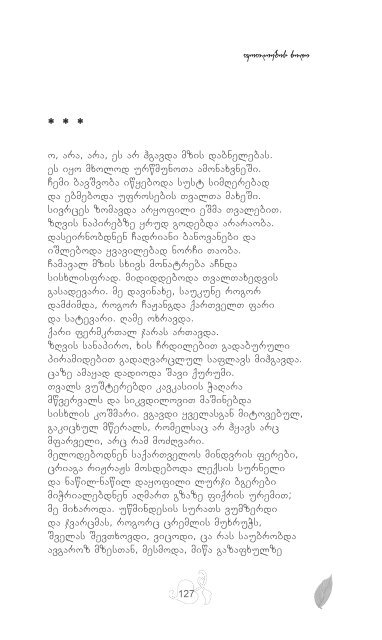 * * *
ო, არა, არა, ეს არ ჰგავდა მზის დაბნელებას.
ეს იყო მხოლოდ ურწმუნოთა ამონახვნეში.
ჩემი ბავშვობა იწყებოდა სუსტ სიმღერებად
და ებმებოდა უფროსების თვალთა მახეში.
სივრცეს ზომავდა არყოფილი ეშმა თვალებით.
ზღვის ნაპირებზე ყრუდ გოდებდა არარაობა.
დასეირნობდნენ ჩადრიანი ბანოვანები და
იშლებოდა ყვავილებად ნორჩი თაობა.
ჩამავალ მზის სხივს მონატრება აჩნდა
სისხლისფრად. მიდიდდებოდა თვალთახედვის
გასადევარი. მე დავინახე, საუკუნე როგორ
დამძიმდა, როგორ ჩაჟანგდა ქართველთ ფარი
და სატევარი. ღამე ოხრავდა.
ქარი ფერმკრთალ ჯარას ართავდა.
ზღვის სანაპირო, ხის ჩრდილებით გადაბურული
პირამიდებით გადაღვარცლულ საფლავს მიჰგავდა.
ცაზე ამაყად დადიოდა შავი ქურუმი.
თვალს ვუშტერებდი კავკასიის ჭაღარა
მწვერვალს და სიკვდილივით მაშინებდა
სისხლის კოშმარი. ვგავდი ყველასგან მიტოვებულ,
გაკიცხულ მწერალს, რომელსაც არ ჰყავს არც
მფარველი, არც რამ მოძღვარი.
მელოდებოდნენ საქართველოს მინდვრის ფერები,
ცრიაგა რიჟრაჟს მოსდებოდა ლექსის სურნელი
და ნაწილ-ნაწილ დაყოფილი ლურჯი ბგერები
მიჭრიალებდნენ აღმართ გზაზე ფიქრის ურემით;
მე მიხაროდა. უწმინდესის სურათს ვუმზერდი
და ჯვარცმას, როგორც ცრემლის მუხრუჭს,
შველას შევთხოვდი, ვიცოდი, ცა რას საუბრობდა
ავგაროზ მზესთან, მესმოდა, მიწა გაზაფხულზე
127